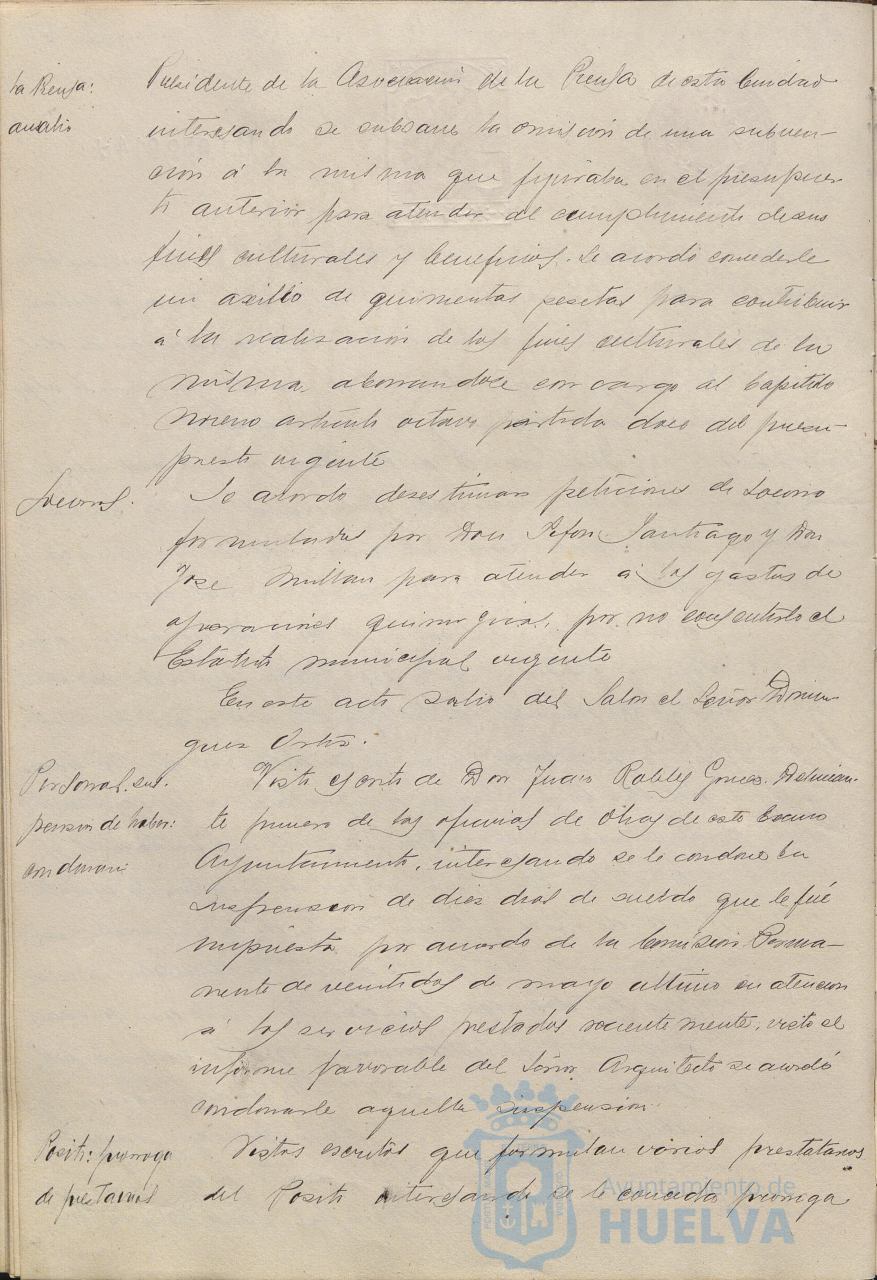 la Prensa:
auxilio
Presidente de la Asociacion de la Prensa de esta Ciudad
interesando se subsane la omisión de una subven-
ción á la misma que figuraba en el presupues-
to anterior para atender al cumplimiento de sus
fines culturales y beneficos. Se acordó concederle
un axilio de quinientas pesetas para contribuir
á la realización de los fines culturales de la
misma, abonandose con cargo al Capitulo
noveno articulo octavo partida doce del presu-
puesto vigente
Socorros.
Se acordo desestimar peticiones de Socorro
formuladas por Don Santiago y Don
Jose Millan para atender á los gastos de
operaciones quirurgicas, por no consentirlo el
Estatuto municipal vigente
En este acto salio del Salon el Señor Domin-
guez Ortiz.
Personal. sus-
pension de haber:
condonan:
Visto escrito de Don Juan Robles Gomez. Delinean-
te primero de las oficinas de Obras de este Excmo
Ayuntamiento, interesando se le condone la
suspension de diez dias de sueldo que le fué
impuesta por acuerdo de la Comisión Perma-
nente de veintidos de mayo ultimo en atencion
á los servicios prestados recientemente, visto el
informe favorable del Señor Arquitecto se acordó
condonarle aquella suspension.
Posito: prorroga
de prestamos
Vistos escritos que formulan varios prestatarios
del Posito interesando se le conceda prorroga
Ayuntamiento de
HUELVA